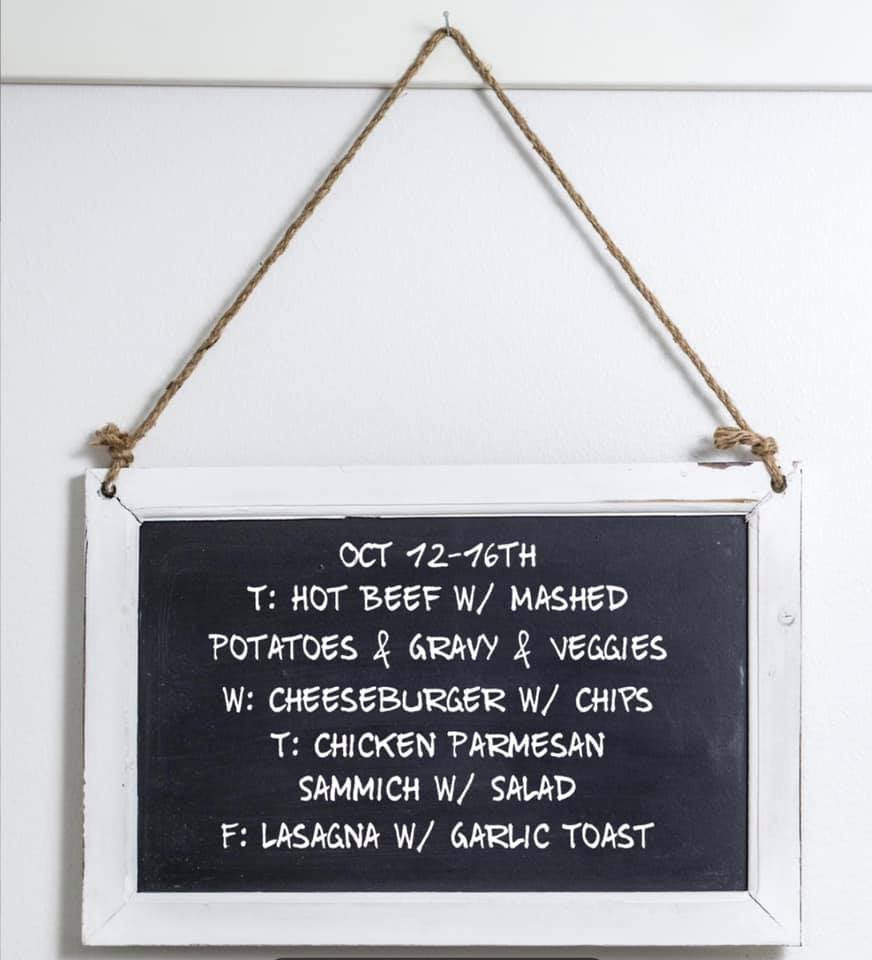 OCT 12-16TH
T: HOT BEEF W/ MASHED
POTATOES & GRAVY & VEGGIES
W: CHEESEBURGER W/ CHIPS
T: CHICKEN PARMESAN
SAMMICH W/ SALAD
F: LASAGNA W/ GARLIC TOAST